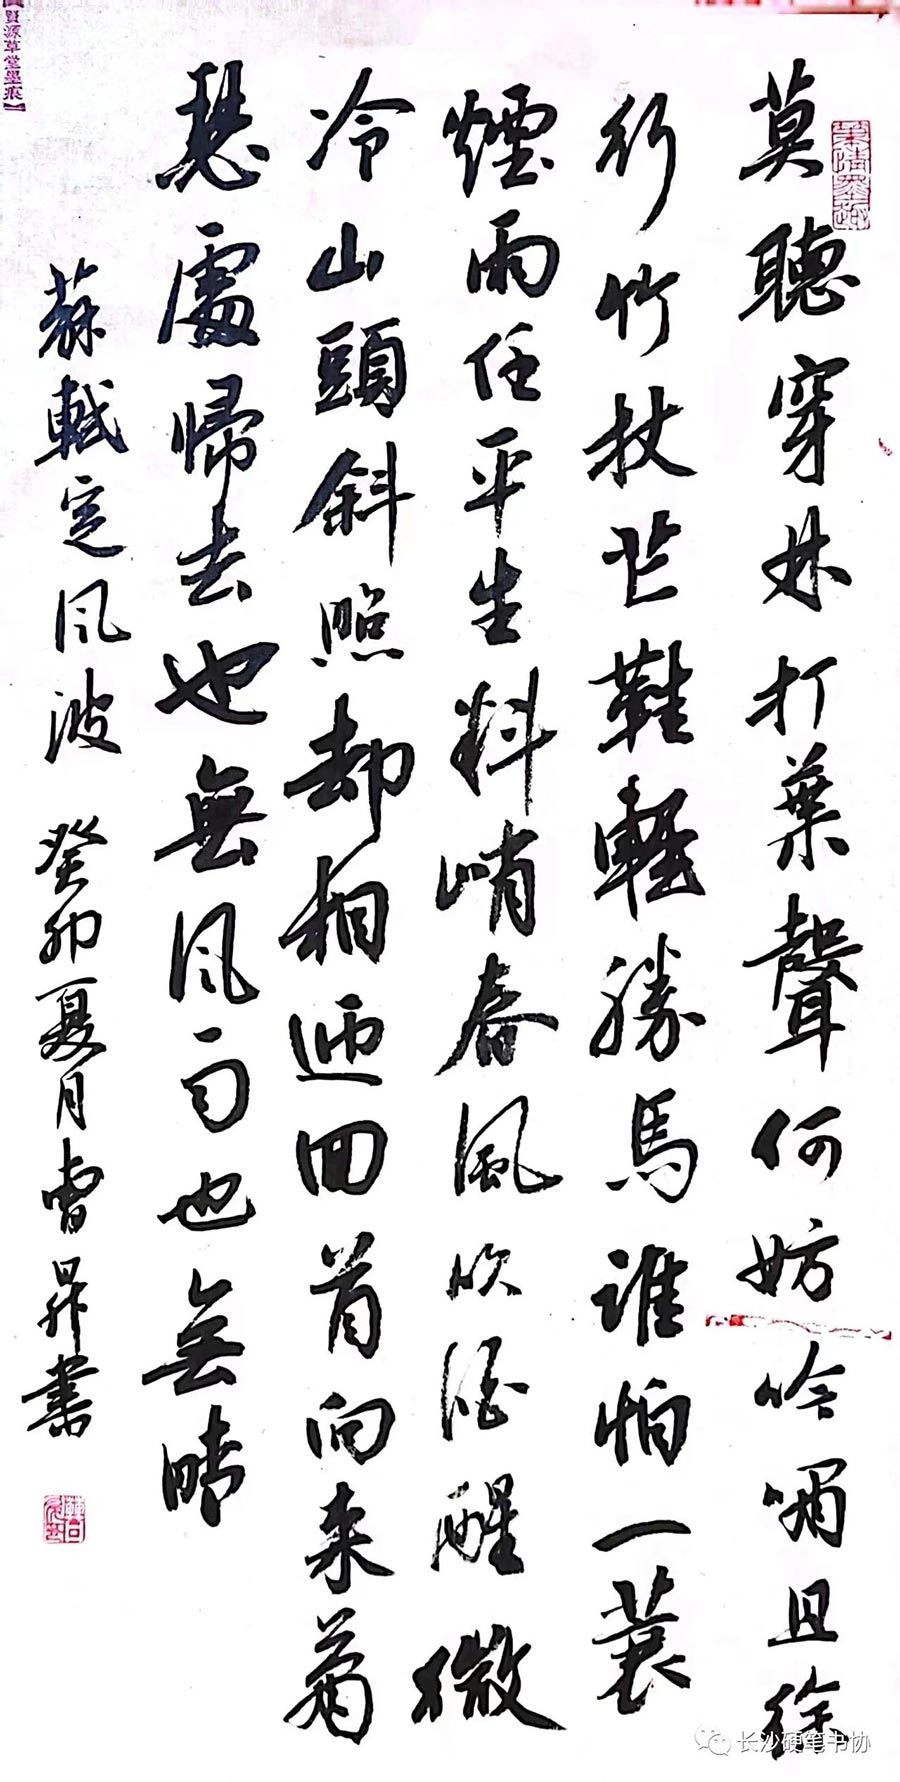 莫聽穿林打葉聲何妨吟嘯且徐
行竹杖芒鞋輕勝馬誰怕一蓑
煙雨任平生料峭春風吹酒醒微
冷山頭斜照却相迎回首向来蕭
瑟處歸去也無风雨也無晴
蘇軾定风波 癸卯夏月曹昇書
賢源草堂墨痕】
长沙硬笔书协